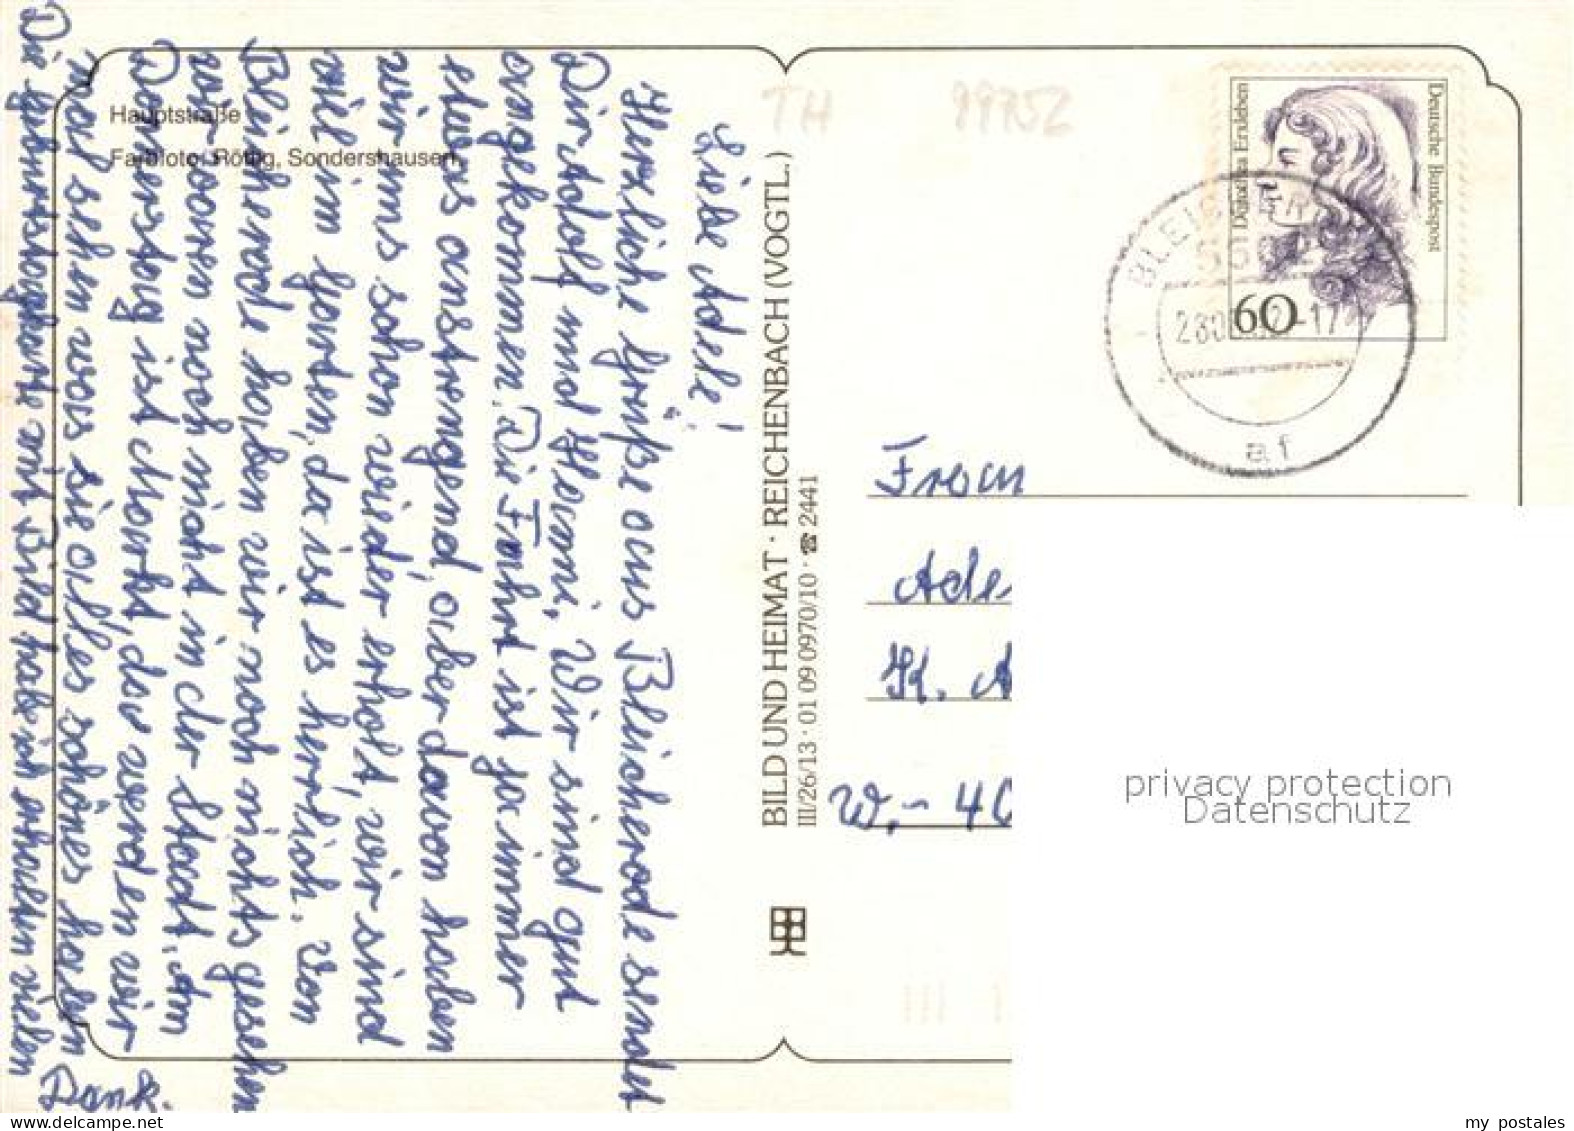 Hauptstraße
Farbfoto: Röttig, Sondershausen
Liebe Adele!
Herzliche Grüße aus Bleicherode sendet
Dir Adolf und Hanni. Wir sind gut
angekommen. Die Fahrt ist ja immer
etwas anstrengend, aber davon haben
wir uns schon wieder erholt, wir sind
viel im Garten, da ist es herrlich. Von
Bleicherode haben wir noch nichts gesehen
wir waren noch nicht in der Stadt. Am
Donnerstag ist Markt, da werden wir
mal sehen was sie alles schönes haben
Die Geburtstagskarte mit Bild hab ich erhalten vielen
Dank.
BILD UND HEIMAT · REICHENBACH (VOGTL.)
III/26/13 · 01 09 0970/10 · ☎ 2441
TH 99752
Deutsche Bundespost
Dorothea Erxleben
60
BLEICHER
af
Frau
Ade
H. A
W.- 40
privacy protection
Datenschutz
my postales